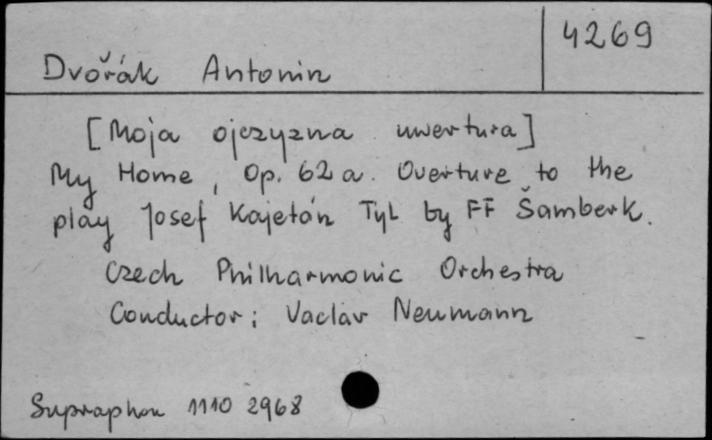 4269
Dvořák Antonin
[Moja ojczyzna uwertura]
My Home, Op. 62 a. Overture to the
play Josef Kajetán Tyl by FF Šamberk.
Czech Philharmonic Orchestra
Conductor: Vaclav Neumann
Supraphon 1110 2968